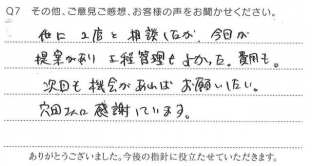 Q7 その他、ご意見ご感想、お客様の声をお聞かせください。
他に2店と相談したが、今回が
提案があり 工程管理もよかった。費用も。
次回も機会があればお願いしたい。
穴田さんに感謝しています。
ありがとうございました。今後の指針に役立たせていただきます。